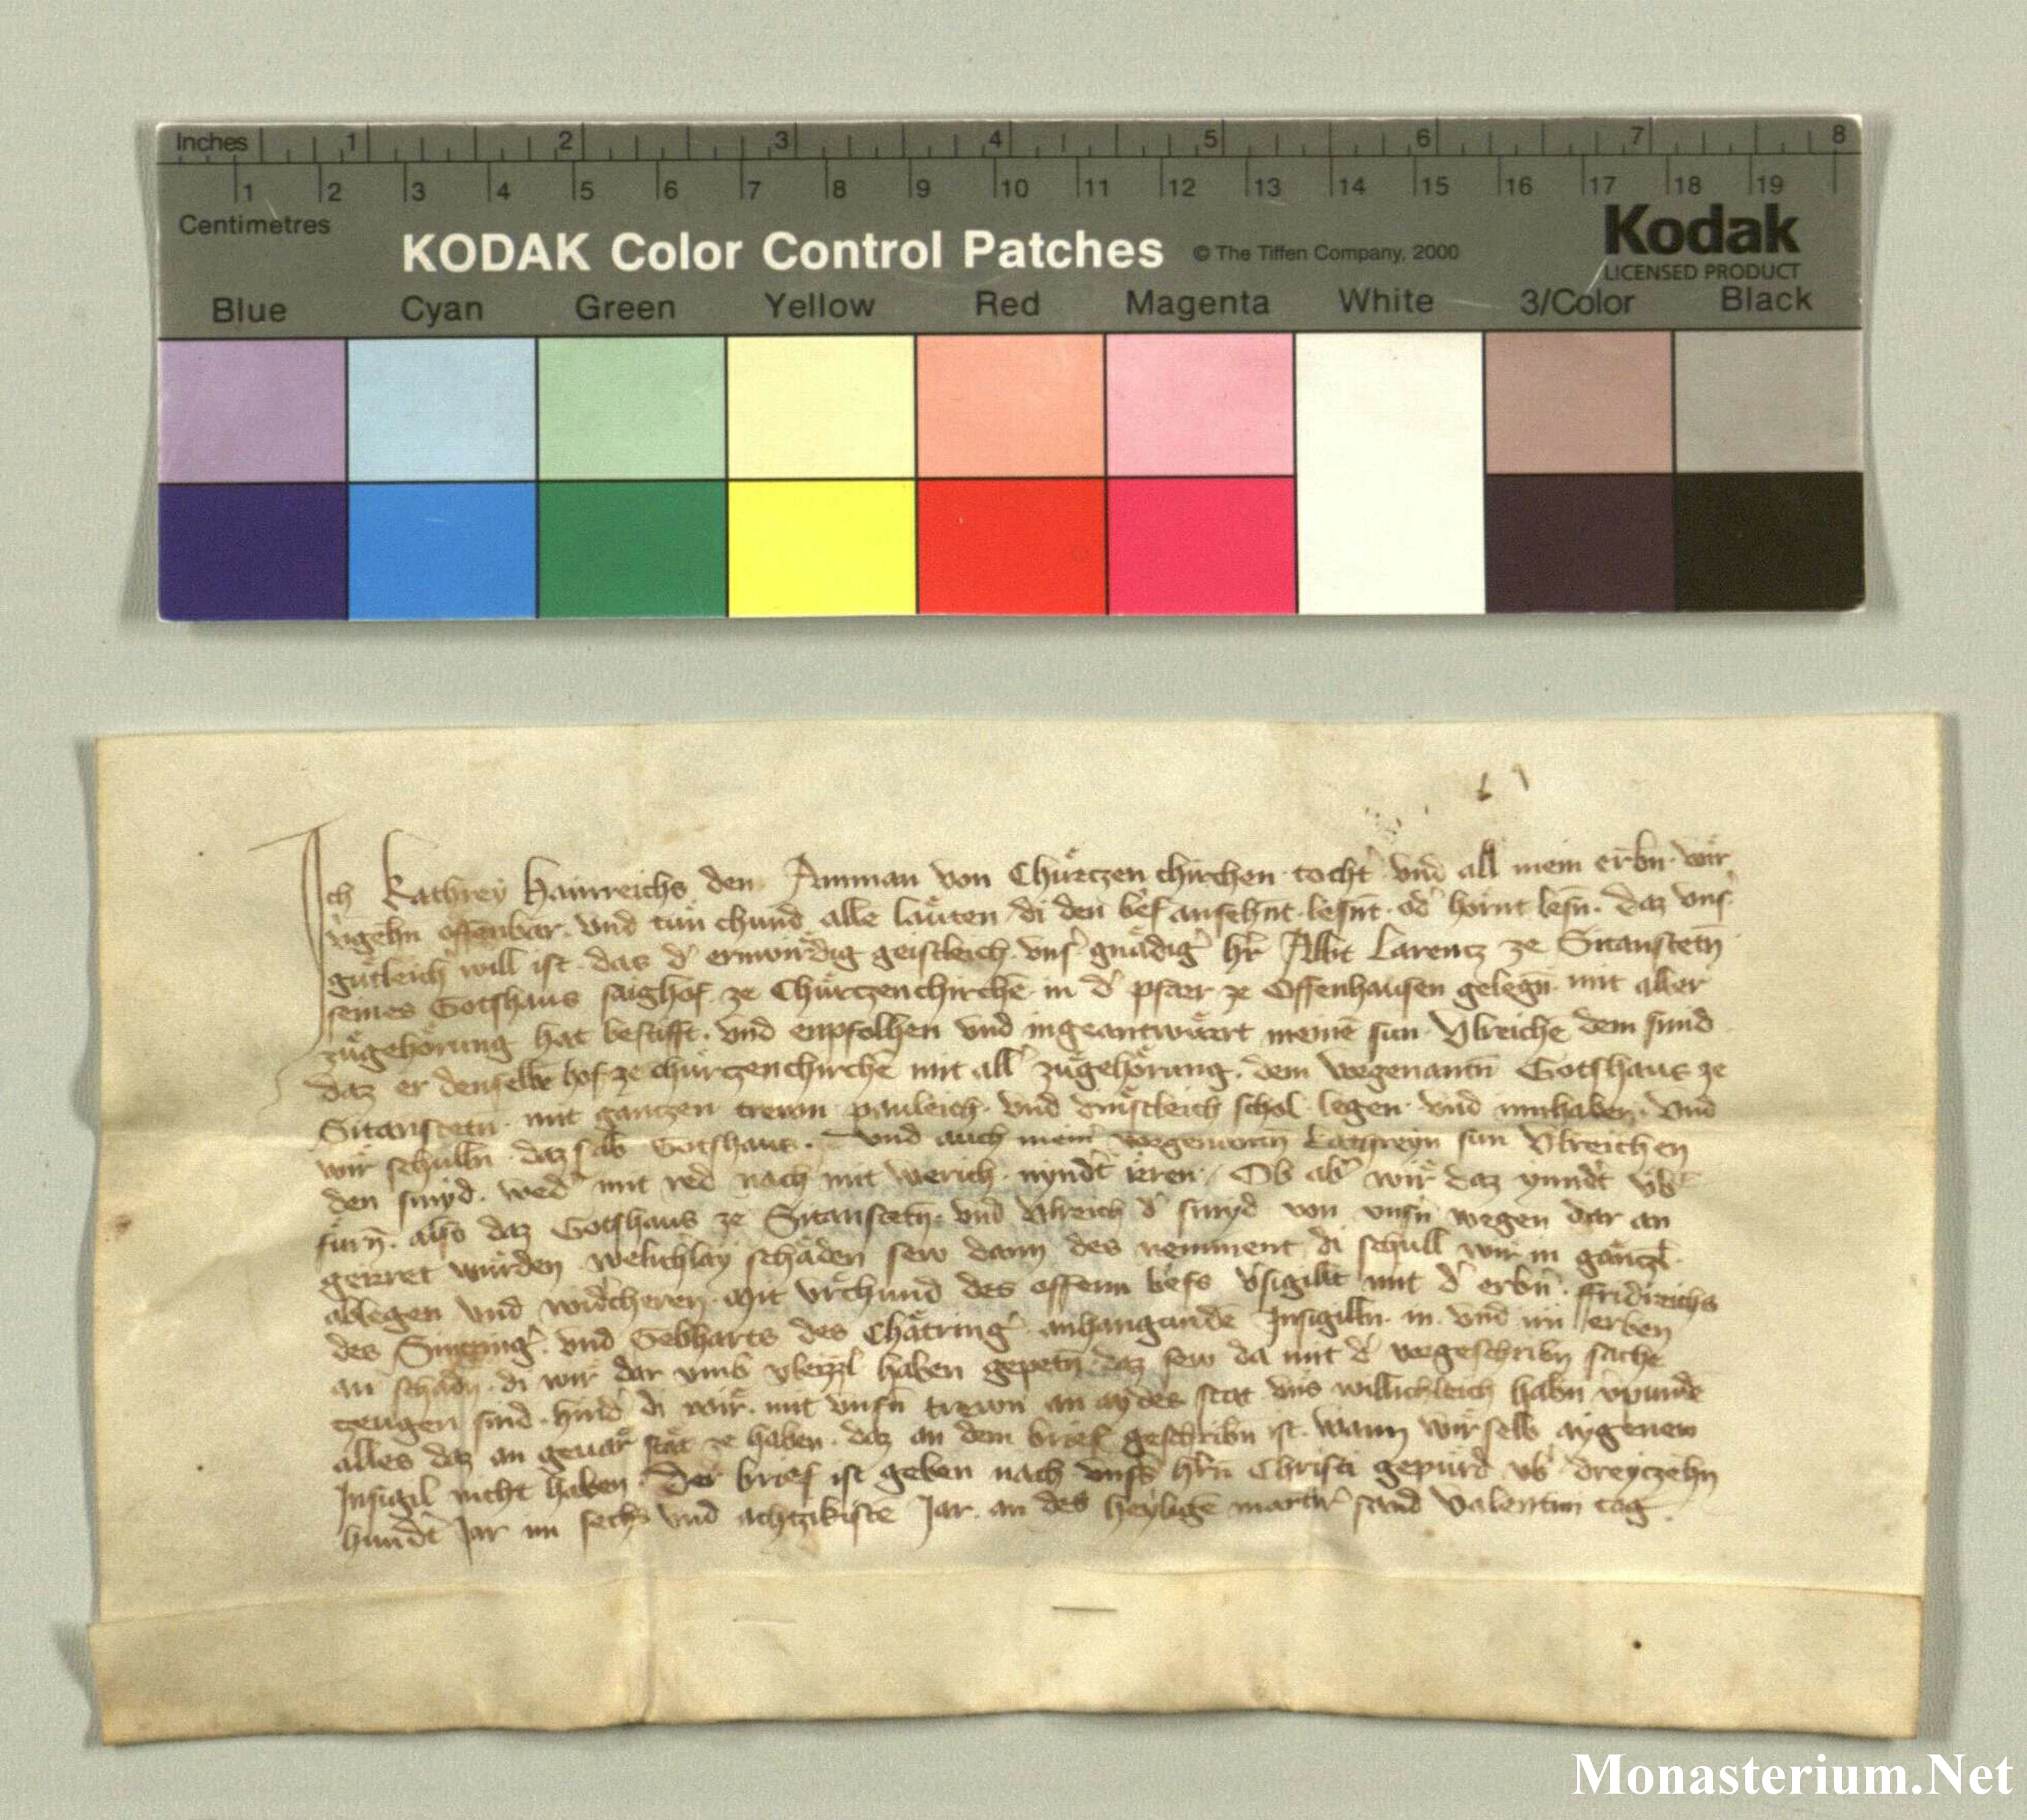 Inches 1 2 3 4 5 6 7 8
1 2 3 4 5 6 7 8 9 10 11 12 13 14 15 16 17 18 19
Centimetres
KODAK Color Control Patches © The Tiffen Company, 2000 Kodak
LICENSED PRODUCT
Blue Cyan Green Yellow Red Magenta White 3/Color Black
Ich Kathrey Hainreichs den Amman von Chuͤrczenchirchen tocht' vnd all mein erbn wir
v'gehn offenbar vnd tuͤn chund alle laͤuten di den brief ansehnt lesnt od' hornt lesn̄ daz vns'
guͤtleich will ist das d' erwirdig geistleich vns' gnaͤdig' hr̄ Abbt Larencz ze Sitanstetn̄
seines Gotshaus hof ze Chuͤrczenchirchē in d' pfarr ze Offenhausen gelegn̄ mit aller
zuͤgehoͤrung hat bestifft vnd enpfolhen vnd ingeantwuͤrt meinē sun Vlreichē dem smid
daz er denselbē hof ze chuͤrczenchirchē mit all' zuͤgehoͤrung dem Gotshaus ze
Sitanstetn mit ganczen trewn pauleich vnd schol legen vnd innhaben vnd
wir schulln daz selb Gotshaus vnd auch mein' Kathreyn sun Vlreichen
den smyd wed' mit red nach mit werich nyndt' irren Ob ab' wir daz ynndt' vb'
fuͤrn̄ also daz Gotshaus ze Sitanstetn̄ vnd Vlreich d' smyd von vnsn̄ wegen dar an
geirret wuͤrden welichlay schaͤden sew dann des nemment di schull wir in gaͤnczl'
ablegen vnd widercheren Mit vrchund des offenn briefs v'sigilt mit d' erbn̄ ffridreichs
des vnd Gebharts des anhangundē Insigilln in vnd irn erben
an schadn di wir dar vmb vleizzl' haben gepetn̄ daz sew da mit d' vorgeschribn̄ sachē
zeugen sind hind' di wir mit vnsn̄ trewn an aydes stat vns willichleich habn v'pundē
alles daz an geuaͤr staͤt ze haben daz an dem brief geschribn ist wann wir selb aygenew
Insigil nicht haben Der brief ist geben nach Christi gepuͤrd vb' dreyczehn
hundt' Jar im sechs vnd achtzikistē Jar an des heyligē sand Valentini tag
Monasterium.Net